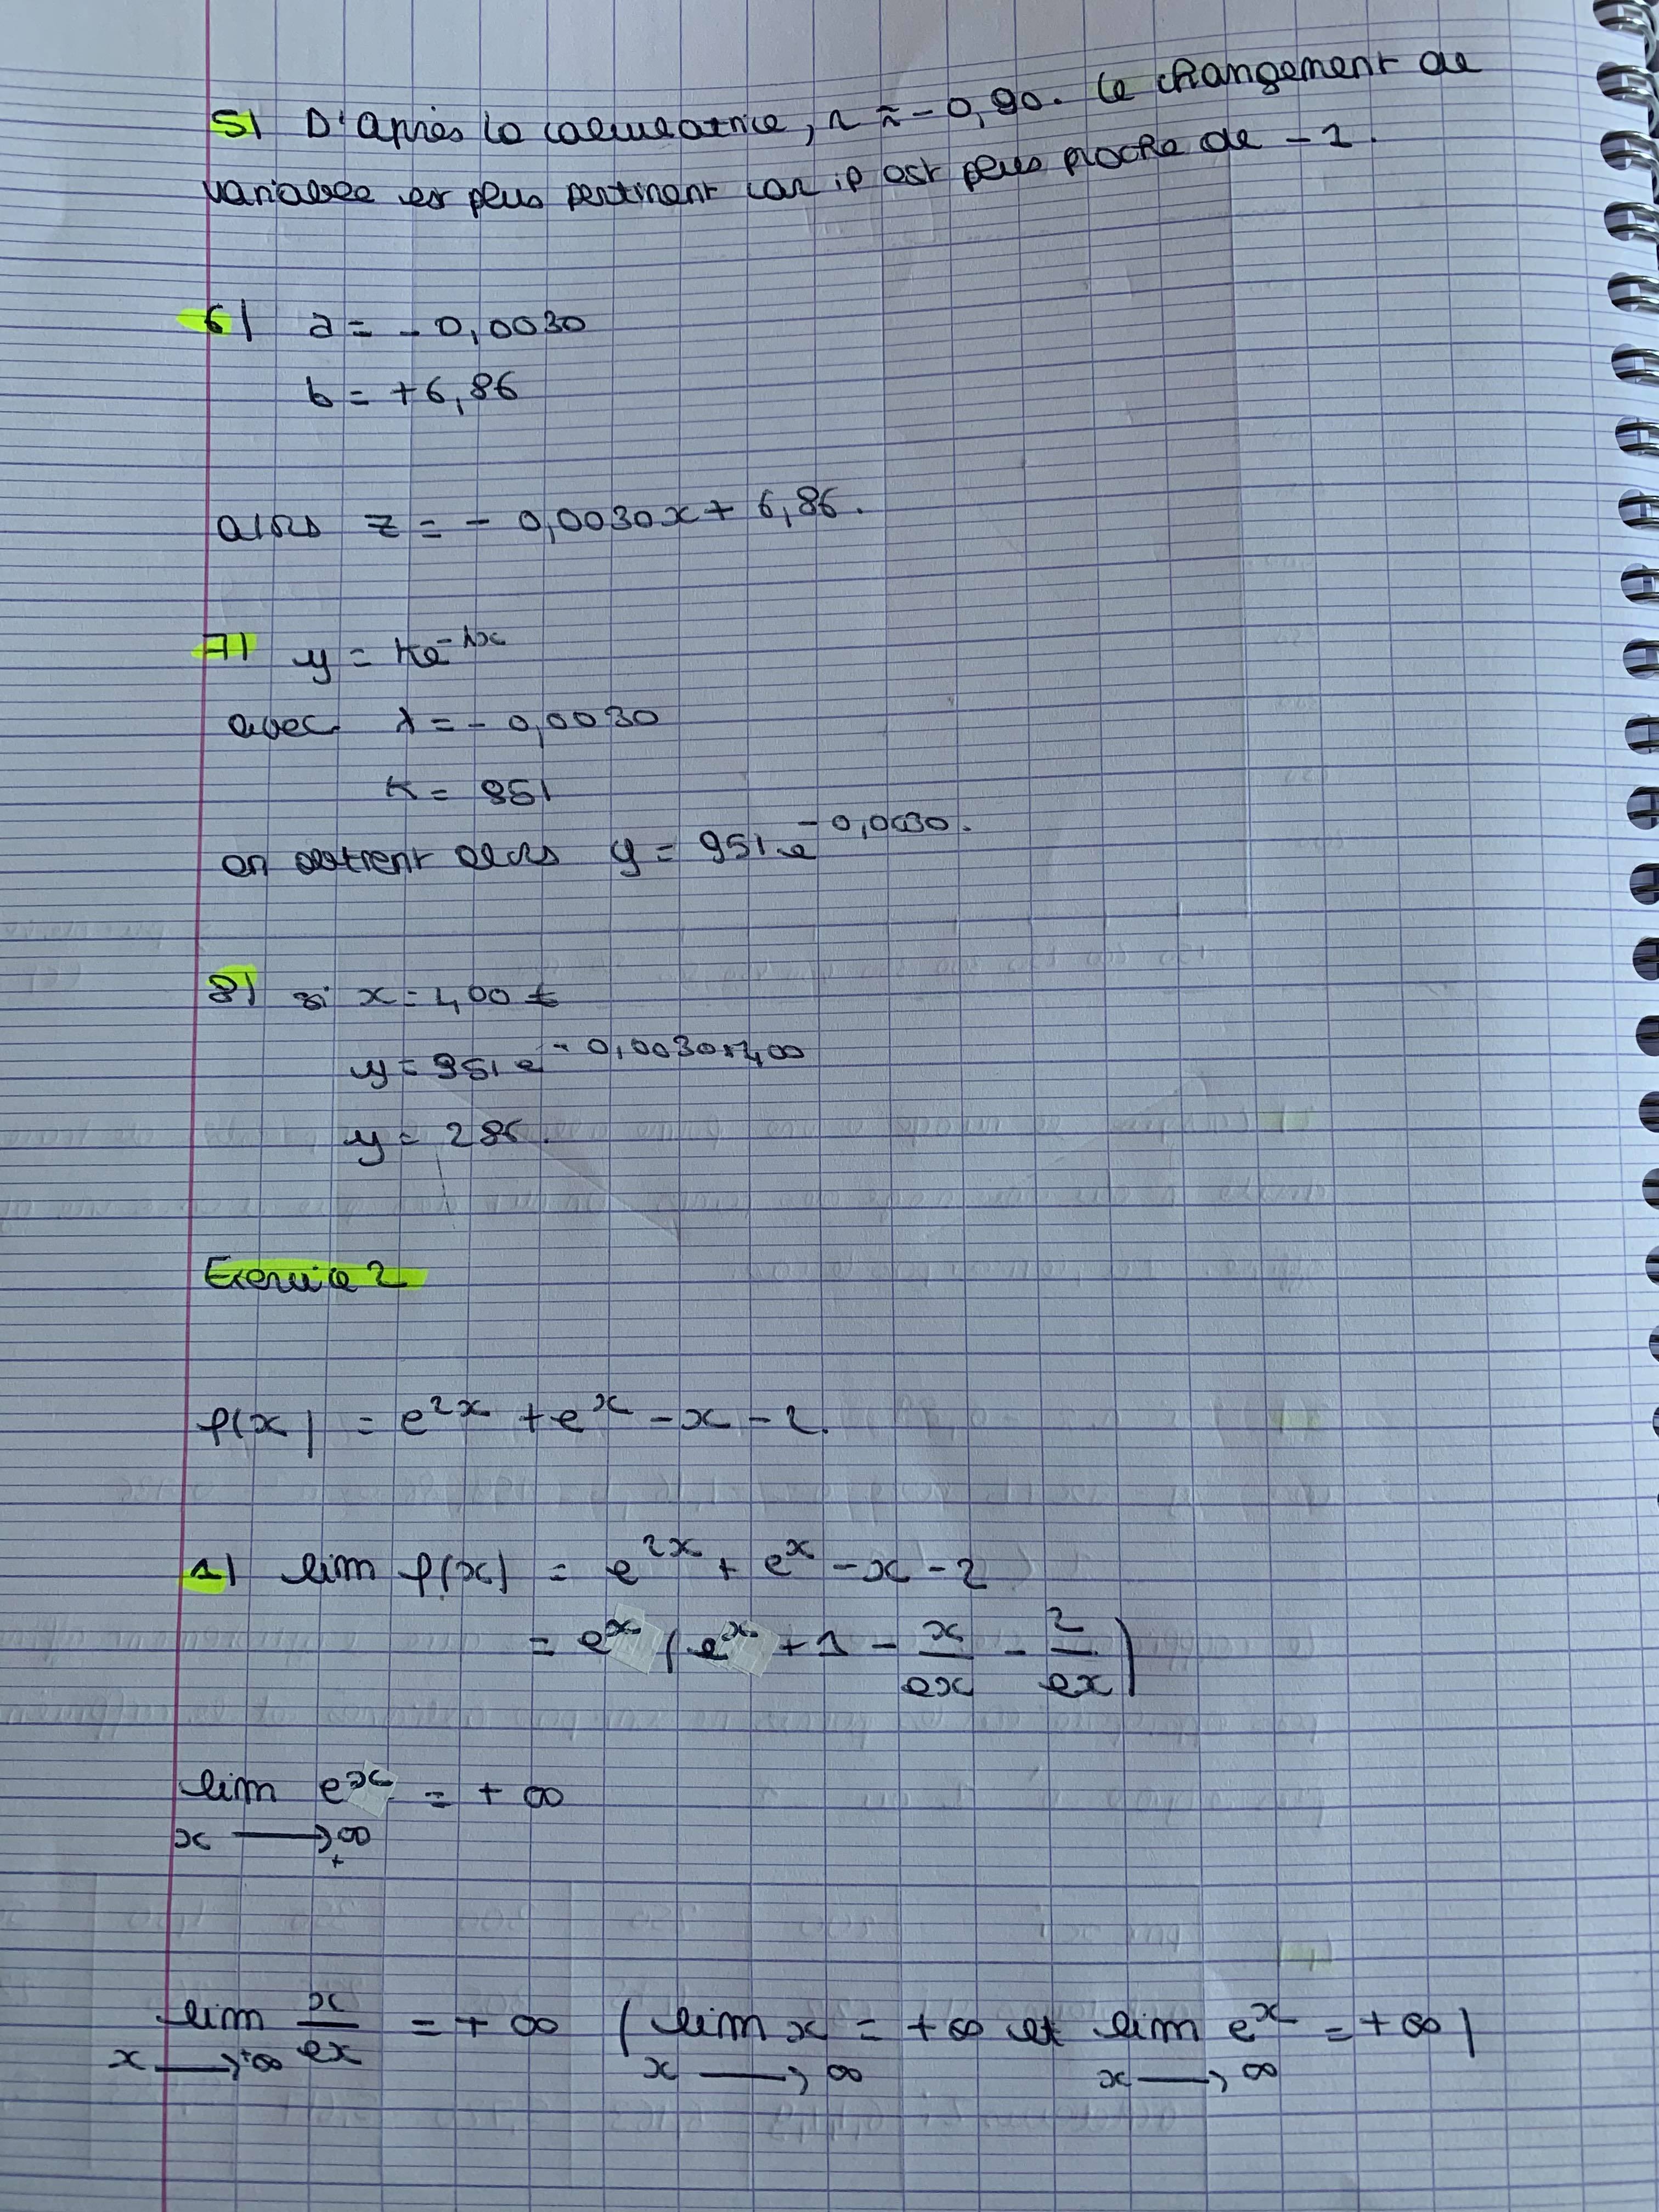 5) D'après la calculatrice, r ≈ - 0,90. Le changement de
variable est plus pertinent car il est plus proche de - 1.
6) a = - 0,0030
b = + 6,86
alors z = - 0,0030x + 6,86.
7) y = Ke^-λx
avec λ = - 0,0030
K = 951
on obtient alors y = 951 e^-0,0030.
8) si x = 400 €
y = 951 e^-0,0030×400
y = 286.
Exercice 2
f(x) = e^2x + e^x - x - 2.
1) lim f(x) = e^2x + e^x - x - 2
= e^x (e^x + 1 - x/ex - 2/ex)
lim e^x = + ∞
x → +∞
lim x/ex = + ∞ (lim x = + ∞ et lim e^x = + ∞)
x → +∞ x → ∞ x → ∞